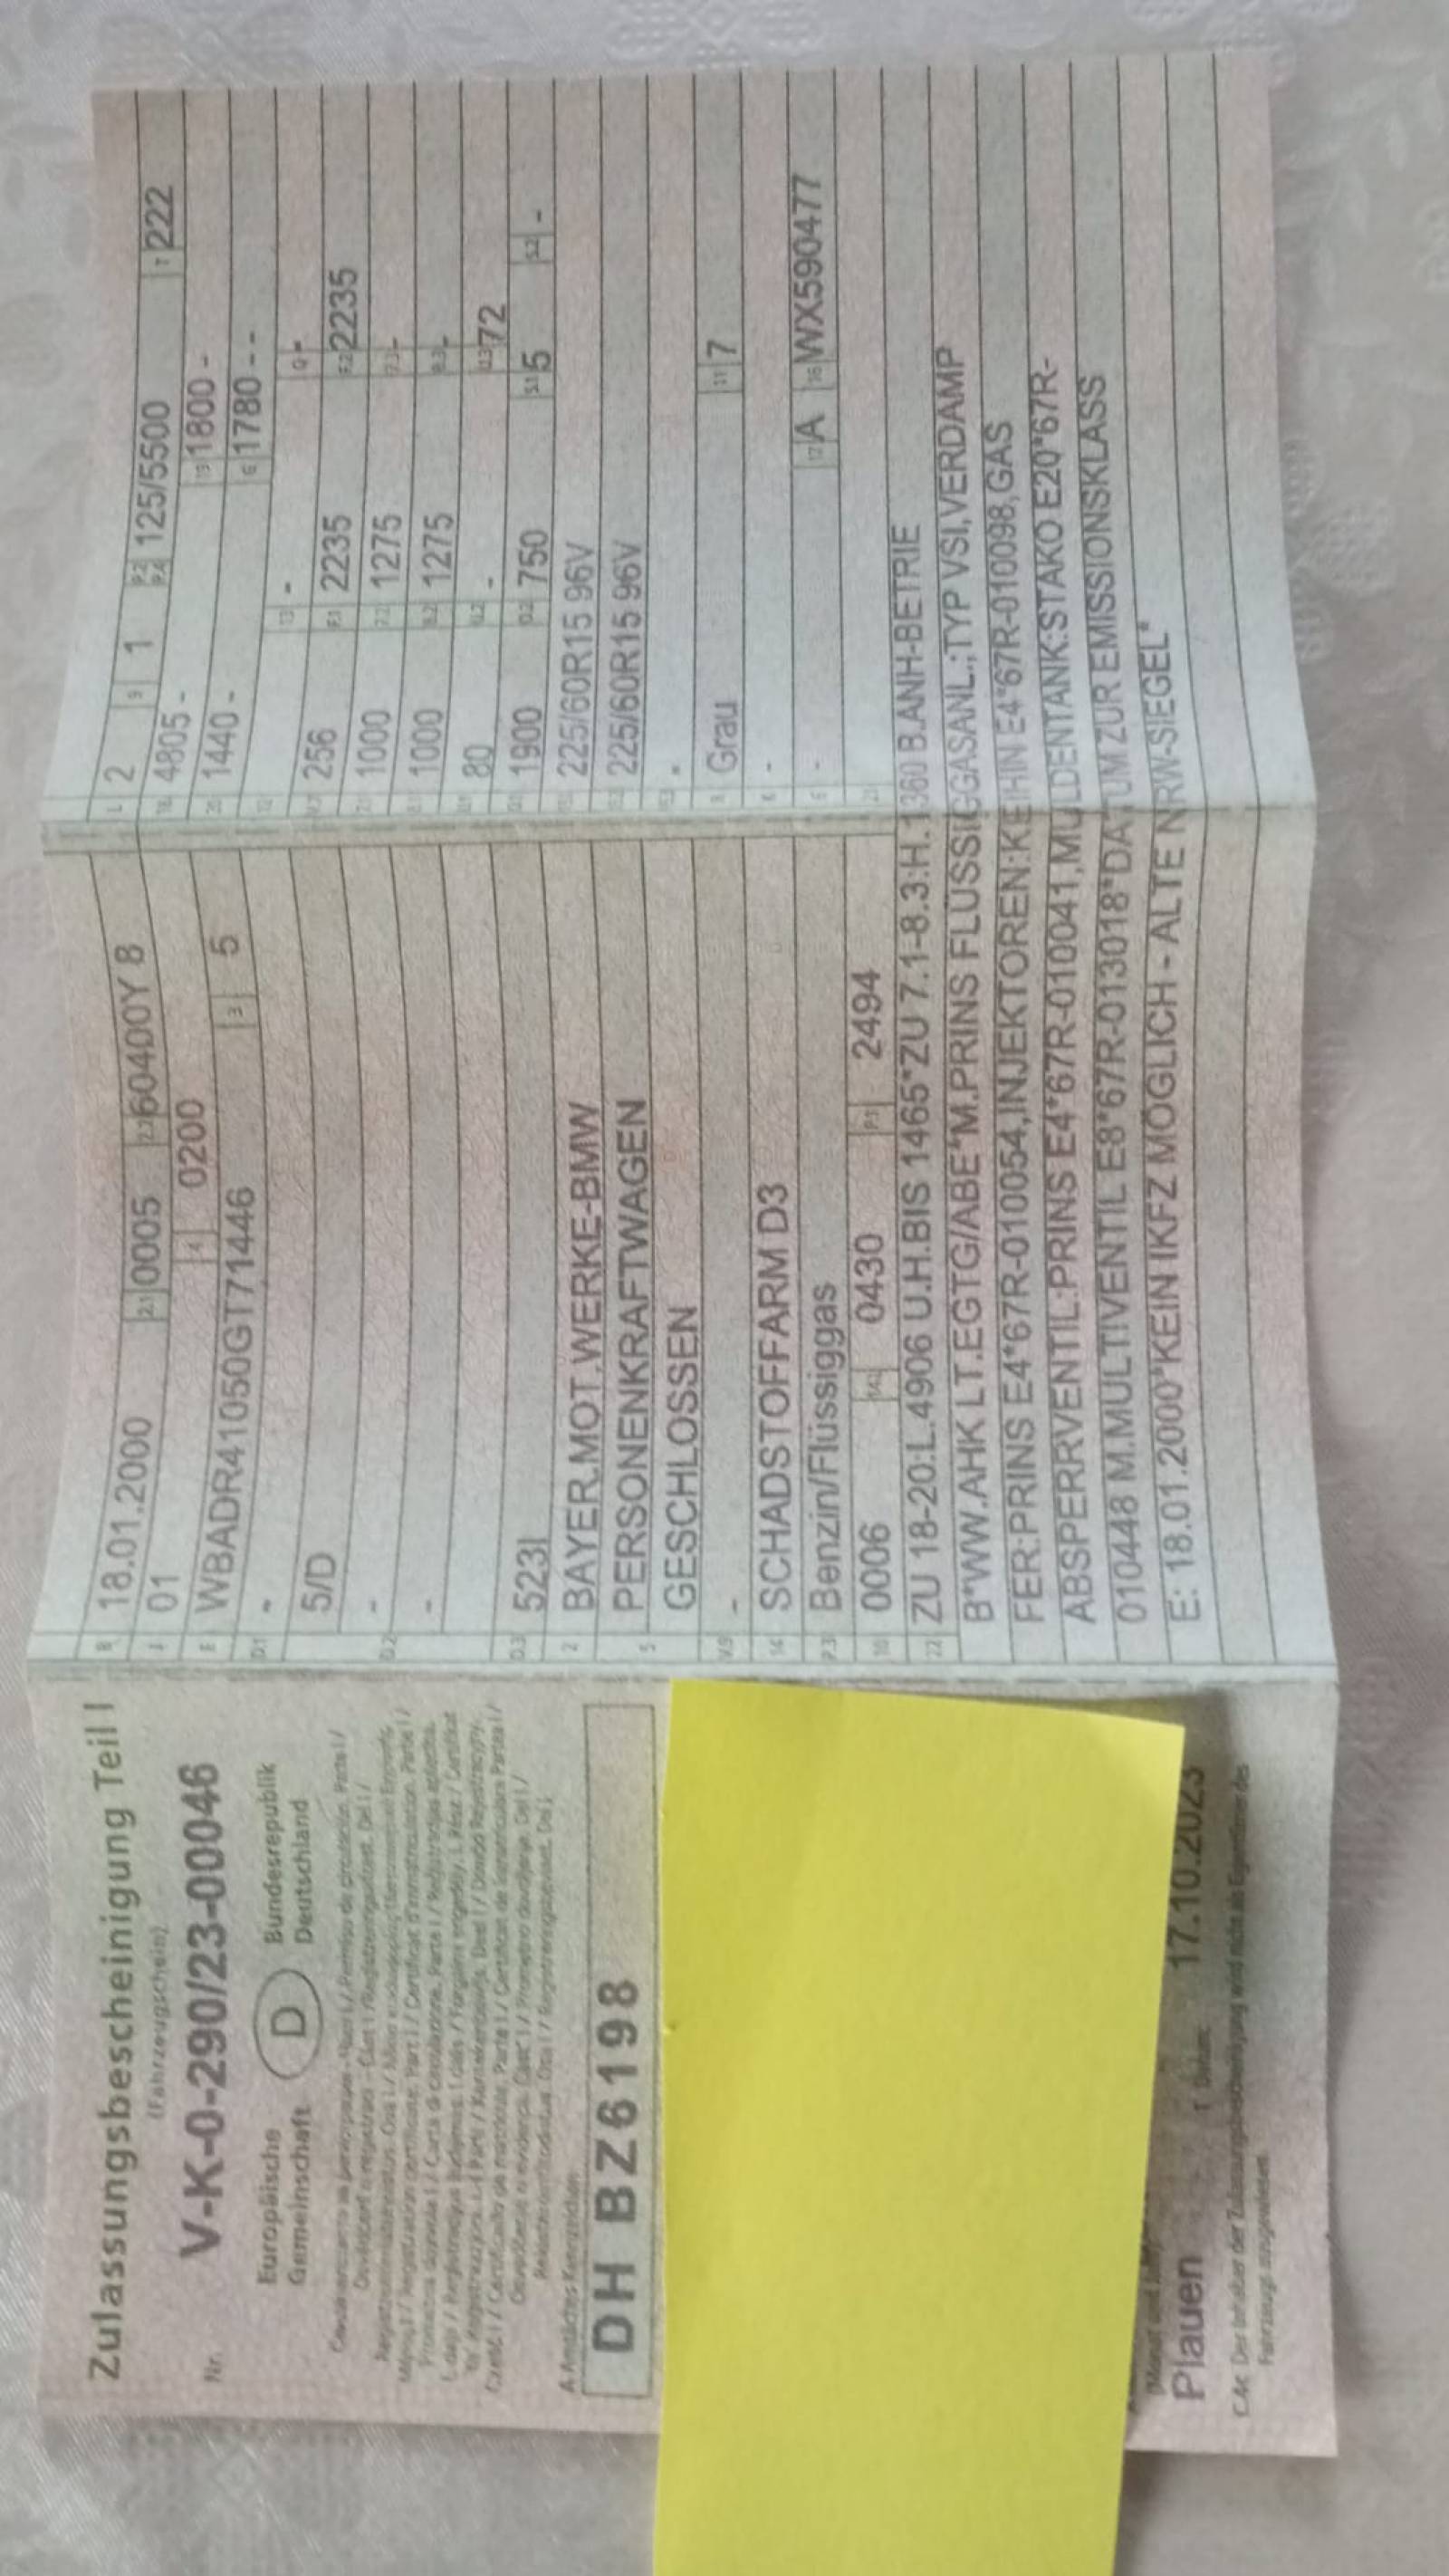 Zulassungsbescheinigung Teil I
(Fahrzeugschein)
Nr. V-K-0-290/23-00046
Europäische Gemeinschaft D Bundesrepublik Deutschland
A Amtliches Kennzeichen
DH BZ6198
Plauen 17.10.2023
C.4c Der Inhaber der Zulassungsbescheinigung wird nicht als Eigentümer des
Fahrzeugs ausgewiesen.
B 18.01.2000 2.1 0005 2.2 60400Y 8
J 01 4 0200
E WBADR41050GT71446 3 5
D.1 -
5/D
D.2 -
-
D.3 523I
2 BAYER.MOT.WERKE-BMW
5 PERSONENKRAFTWAGEN
GESCHLOSSEN
V.9 -
14 SCHADSTOFFARM D3
P.3 Benzin/Flüssiggas
10 0006 14.1 0430 P.1 2494
L 2 9 1 P.2 P.4 125/5500 T 222
18 4805 - 19 1800 -
20 1440 - G 1780 - -
12 - 13 - Q -
V.7 256 F.1 2235 F.2 2235
7.1 1000 7.2 1275 7.3 -
8.1 1000 8.2 1275 8.3 -
U.1 80 U.2 - U.3 72
O.1 1900 O.2 750 S.1 5 S.2 -
15.1 225/60R15 96V
15.2 225/60R15 96V
15.3 -
R Grau 11 7
K -
6 - 17 A 16 WX590477
21
22 ZU 18-20:L.4906 U.H.BIS 1465*ZU 7.1-8.3:H.1360 B.ANH-BETRIE
B*WW.AHK LT.EGTG/ABE*M.PRINS FLÜSSIGGASANL.;TYP VSI,VERDAMP
FER:PRINS E4*67R-010054,INJEKTOREN:KEIHIN E4*67R-010098,GAS
ABSPERRVENTIL:PRINS E4*67R-010041,MULDENTANK:STAKO E20*67R-
010448 M.MULTIVENTIL E8*67R-013018*DATUM ZUR EMISSIONSKLASS
E: 18.01.2000*KEIN IKFZ MÖGLICH - ALTE NRW-SIEGEL*